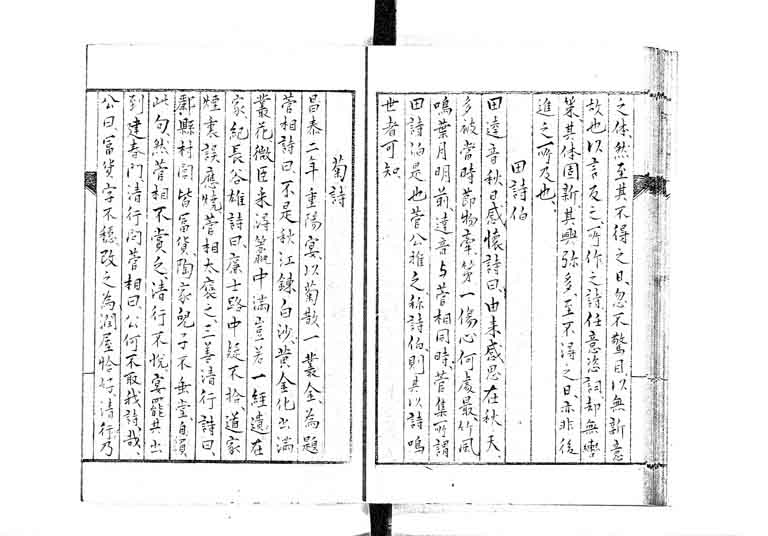 之体然至其不得之日忽不驚目以無新意
故也以言反之所作之詩任意恣詞却無
葉其体固新其興弥多至不得之日亦非後
進之所及也
田詩伯
田達音秋日感懐詩曰由来感思在秋天
多被當時節物牽第一傷心何處最竹風
鳴葉月明前達音与菅相同時菅集所謂
田詩伯是也菅公推之称詩伯則其以詩鳴
世者可知
菊詩
昌泰二年重陽宴以菊散一叢金為題
菅相詩曰不是秋江錬白沙黄金化出満
叢花微臣采得籯中満豈若一経遺在
家紀長谷雄詩曰廉士路中疑不拾道家
煙裏誤應焼菅相大褒之三善清行詩曰
酈縣村閭皆富貨陶家兒子不垂堂自負
此句然菅相不賞之清行不悦宴罷其出
到建春門清行問菅相曰公何不取我詩哉
公曰富貨字不穏改之為潤屋恰好清行乃